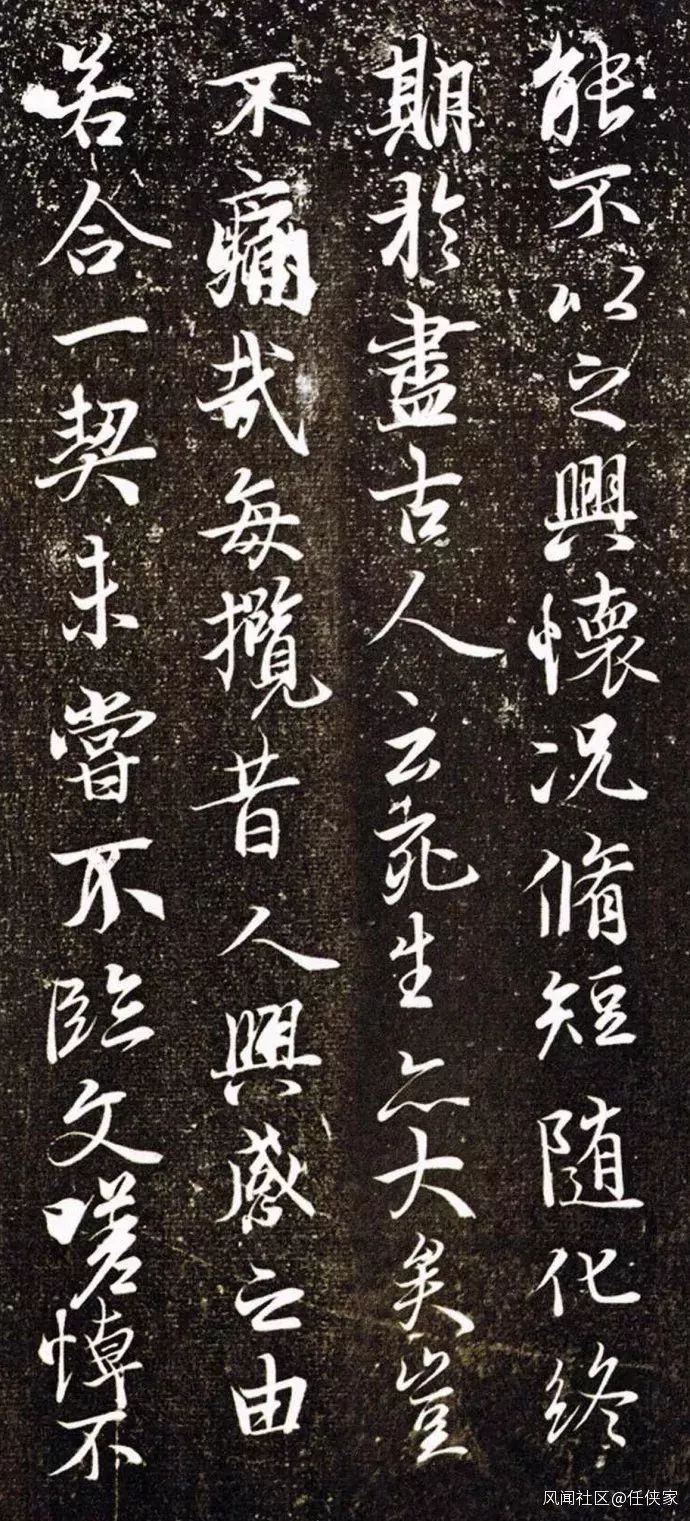 能不以之興懷况脩短随化終
期於盡古人云死生亦大矣豈
不痛哉每攬昔人興感之由
若合一契未嘗不臨文嗟悼不
风闻社区@任侠家